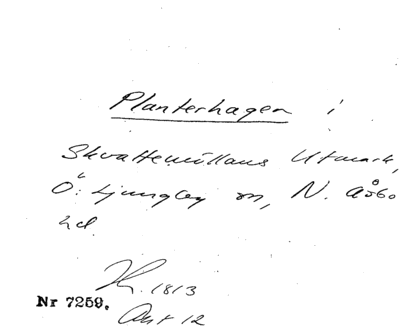 Planterhagen i
Skvattemöllans Utmark,
Ö. Ljungby sn, N. Åsbo
hd.
1813
Nr 7259.
Akt 12